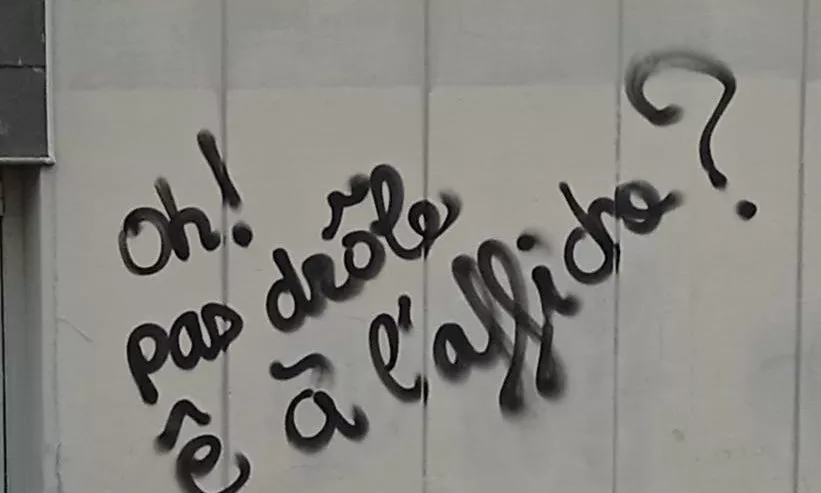 Oh!
pas drôle
ê â l'affiche?